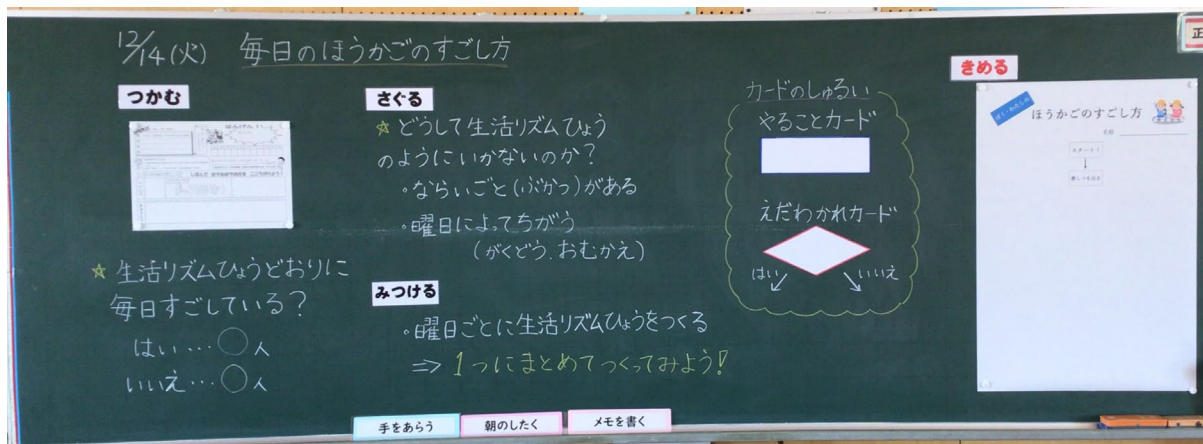 12/14(火) 毎日のほうかごのすごし方
つかむ
☆生活リズムひょうどおりに
毎日すごしている?
はい…○人
いいえ…○人
さぐる
☆どうして生活リズムひょう
のようにいかないのか?
・ならいごと(ぶかつ)がある
・曜日によってちがう
(がくどう、おむかえ)
みつける
・曜日ごとに生活リズムひょうをつくる
⇒1つにまとめてつくってみよう!
カードのしゅるい
やることカード
えだわかれカード
はい
いいえ
きめる
ぼく・わたしの
ほうかごのすごし方
名前
スタート!
手をあらう
朝のしたく
メモを書く
正